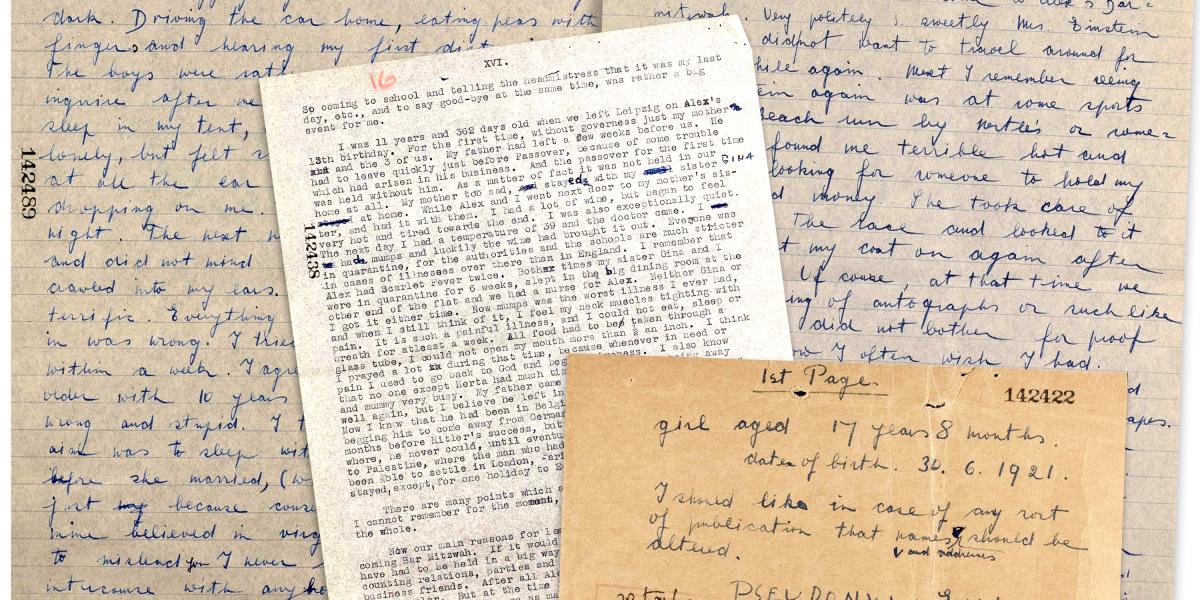 dark. Driving the car home, eating peas with
fingers and hearing my first
The boys were
inquire after me
sleep in my tent,
lonely, but felt
at all the ear
dropping on me.
night. The next
and did not mind
crawled into my ears.
terrific. Everything
in was wrong. I tried
within a week. I agre
older with 10 years
wrong and stupid. I
aim was to sleep wit
before she married, (w
just my because cours
mine believed in virg
to mislead you I never
intercourse with any
142489
16
XVI.
So coming to school and telling the headmistress that it was my last
day, etc., and to say good-bye at the same time, was rather a big
event for me.
I was 11 years and 362 days old when we left Leipzig on Alex's
13th birthday. For the first time, without governess just my mother
xxx and the 3 of us. My father had left a few weeks before us. He
had to leave quickly just before Passover, because of some trouble
which had arisen in his business. And the passover for the first time
was held without him. As a matter of fact it was not held in our
home at all. My mother too sad, and stayed with my sister GINA
at home. While Alex and I went next door to my mother's sis-
ter, and had it with them. I had a lot of wine, but began to feel
very hot and tired towards the end. I was also exceptionally quiet.
The next day I had a temperature of 39 and the doctor came. I
had mumps and luckily the wine had brought it out. Everyone was
in quarantine, for the authorities and the schools are much stricter
in cases of illnesses over there than in England. I remember that
Alex had Scarlet Fever twice. Both times my sister Gina and I
were in quarantine for 6 weeks, slept in the big dining room at the
other end of the flat and we had a nurse for Alex. Neither Gina or
I got it either time. Now mumps was the worst illness I ever had,
and when I still think of it, I feel my neck muscles tighting with
pain. It is such a painful illness, and I could not eat, sleep or
breath for atleast a week. All food had to be taken through a
glass tube, I could not open my mouth more than ½ an inch. I think
I prayed a lot xx during that time, because whenever in need or
pain I used to go back to God and beg
ness. I also know
that no one except Herta had much tim
ing away
and mummy very busy. My father came
well again, but I believe he left in
Now I know that he had been in Belgi
begging him to come away from German
months before Hitler's success, but
where, he never could, until eventu
to Palestine, where the man who had
been able to settle in London, Pari
stayed, except, for one holiday to E
There are many points which s
I cannot remember for the moment,
the whole.
Now our main reasons for lea
coming Bar Mitzwah. If it would
have had to be held in a big way
counting relations, parties and
business friends. After all Ale
But at the time
142438
mitzwah. Very politely & sweetly Mrs. Einstein
did not want to travel around for
while again. Next I remember seeing
ein again was at some sports
beach run by
found me terrible hot and
looking for someone to hold my
d money She took care of
The race and looked to it
t my coat on again after
Of course, at that time we
ing of autographs or such like
did not bother for proof
ow I often wish I had.
1st Page.
142422
girl aged 17 years 8 months.
date of birth. 30. 6. 1921.
I should like in case of any sort
of publication that names should be
and addresses
altered.